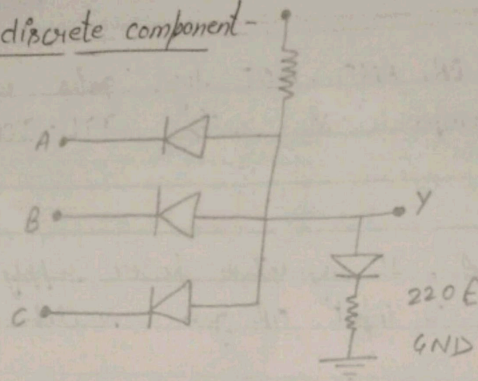 discrete component-
A
B
Y
C
220E
GND